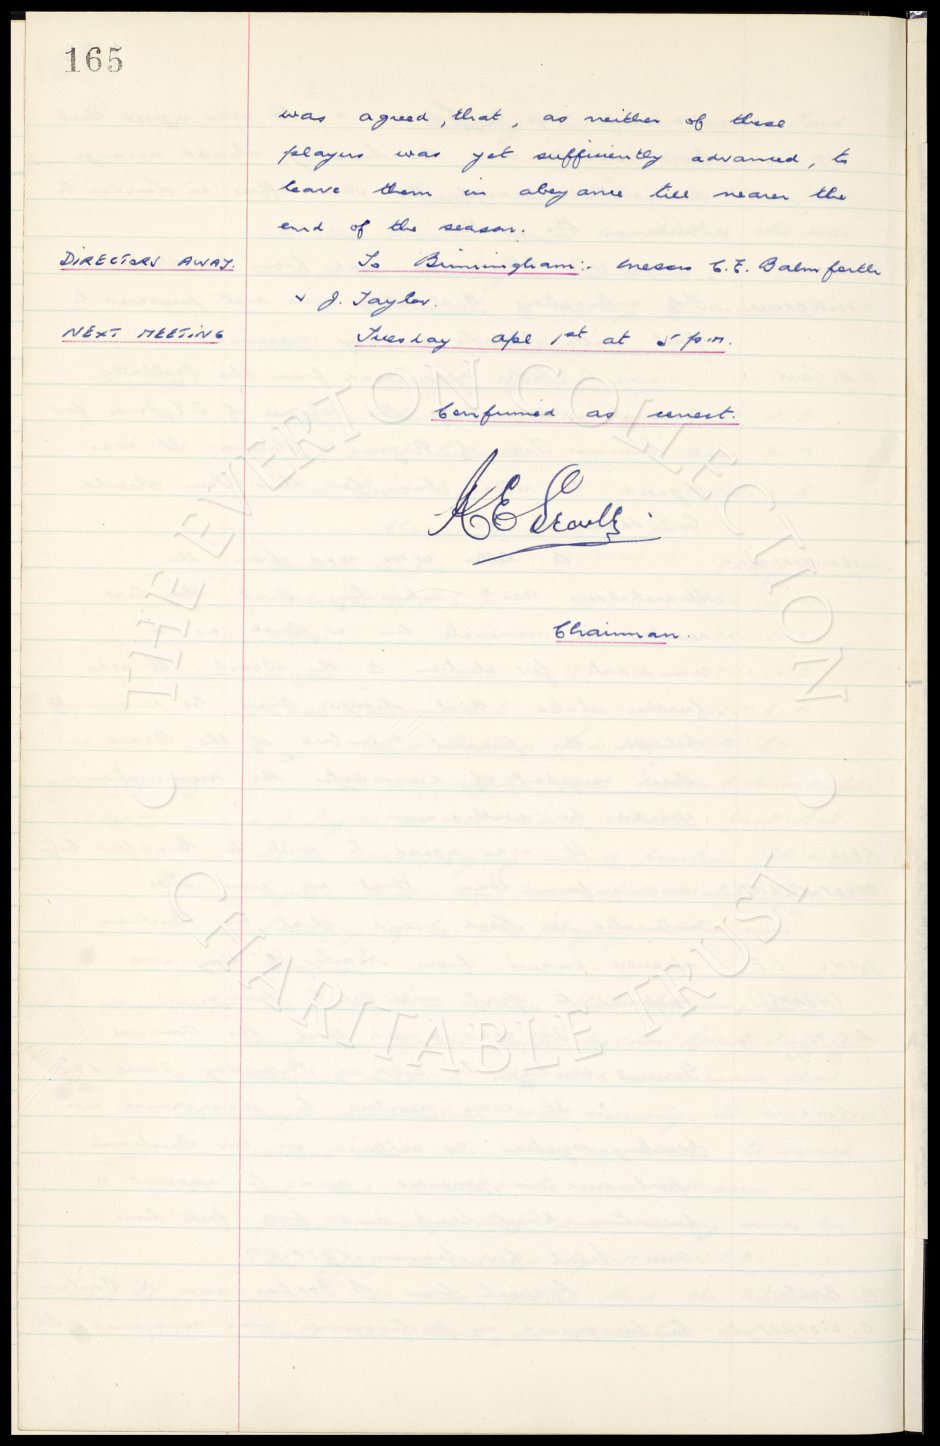 165
was agreed, that, as neither of these
players was yet sufficiently advanced, to
leave them in abeyance till nearer the
end of the season.
DIRECTORS AWAY. To Birmingham:- Messrs C.E. Balmforth
& J. Taylor.
NEXT MEETING Tuesday Apl 1st at 5 p.m.
Confirmed as correct.
Chairman.
THE EVERTON COLLECTION
CHARITABLE TRUST